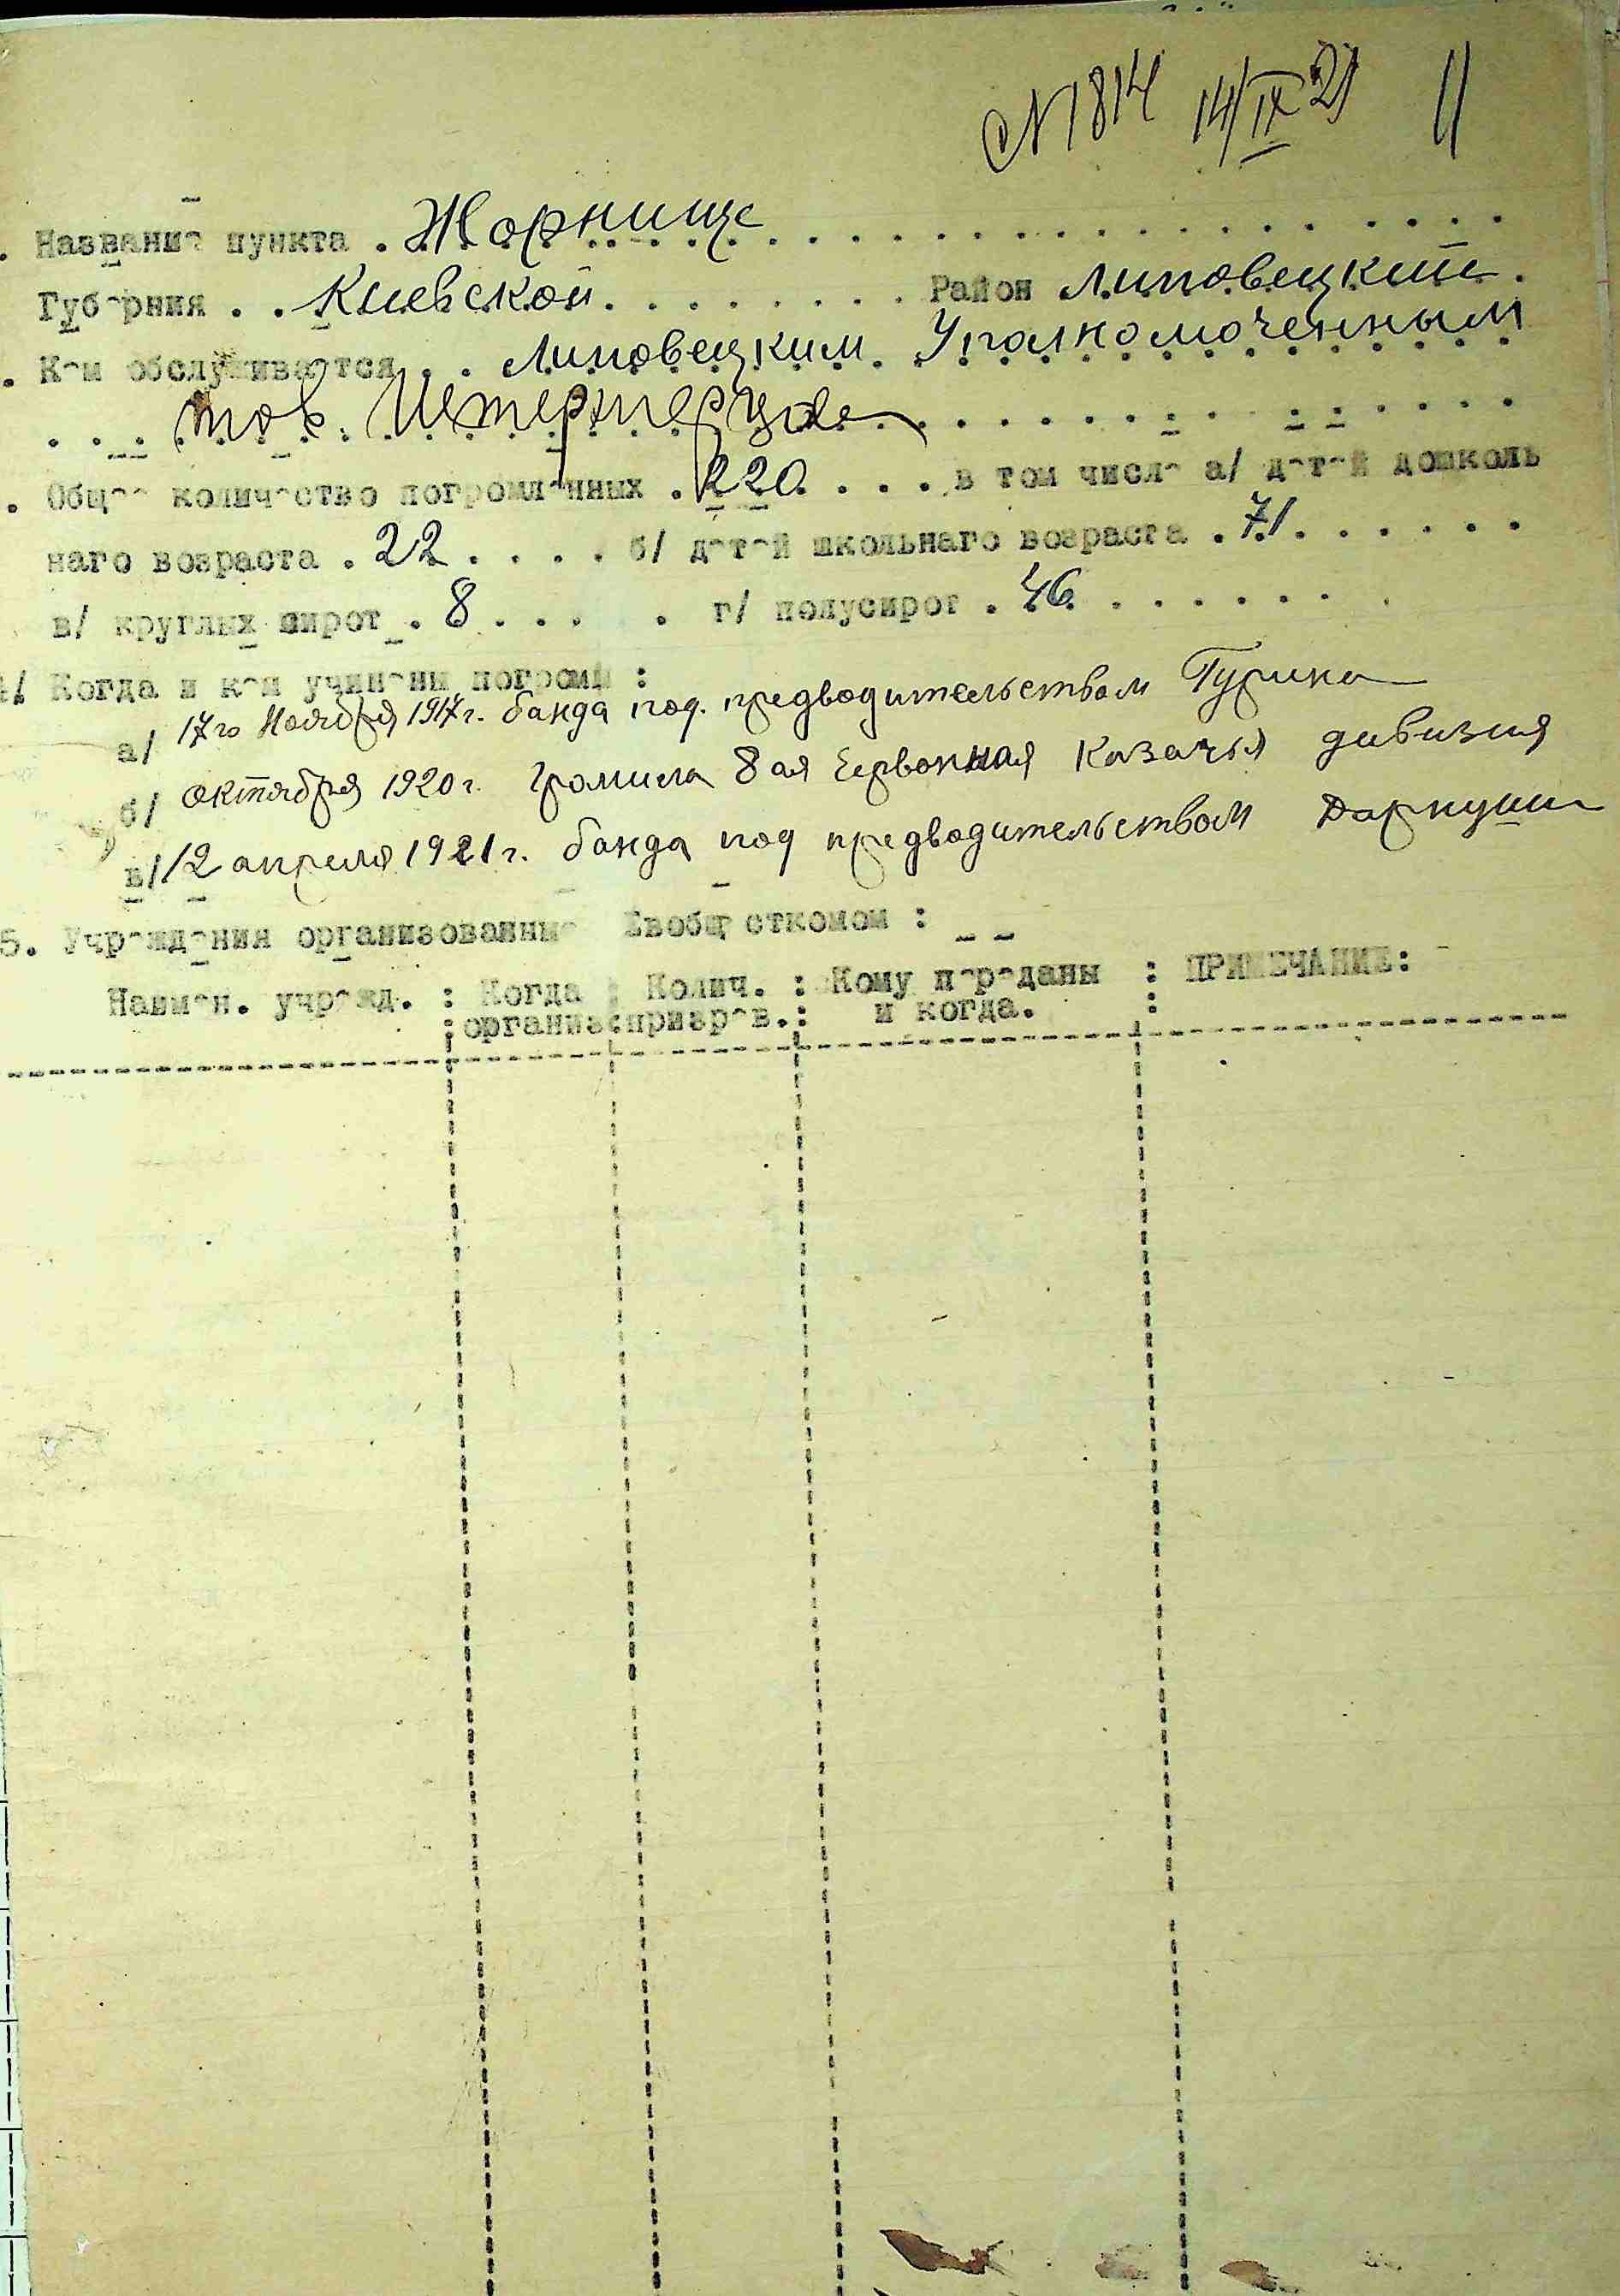 № 1814 14/IX 21 11
. Название пункта . Жорнище
Губерния . . Киевской . . . . . . . . Район Липовецкий .
. Кем обслуживается . . Липовецким Уполномоченным
тов.
. Общее количество погромленных . 220 . . . . в том числе а/ детей дошколь
наго возраста . 22 . . . . б/ детей школьнаго возраста . 71 . . . . . .
в/ круглых сирот . 8 . . . . г/ полусирот . 46 . . . . . . . .
4/ Когда и кем учинены погромы :
а/ 17го Ноября 1917г. банда под. предводительством
б/ октября 1920г. громила 8ая Червонная Казачья дивизия
в/ 12 апреля 1921г. банда под предводительством
5. Учреждения организованные Евобщесткомом :
Наимен. учрежд. : Когда : Колич. : Кому переданы : ПРИМЕЧАНИЕ:
: организ : призрев. : и когда. :